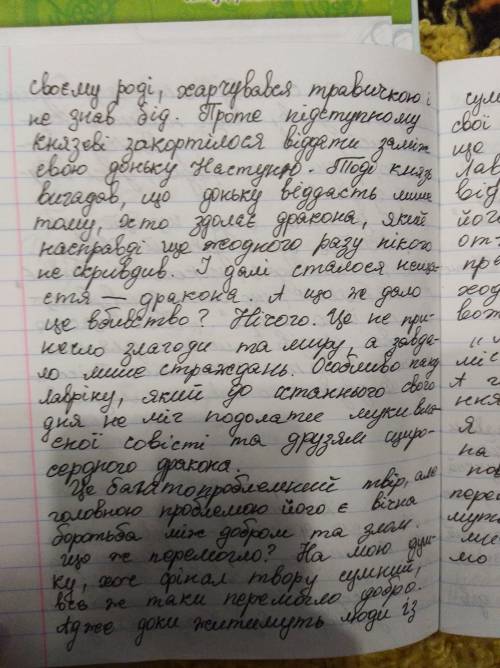 своєму роді, харчувався травичкою і
не знав бід. Проте підступному
князеві закортілося віддати заміж
свою доньку Настуню. Тоді князь
вигадав, що доньку віддасть лише
тому, хто здолає дракона, який
насправді ще жодного разу нікого
не скривдив. І далі сталося неща-
стя — дракона. А що же дало
це вбивство? Нічого. Це не при-
несло злагоди та миру, а завда-
ло лише страждань. Особливо пану
лавріну, який до останнього свого
дня не міг подолати муки вла-
сної совісті та друзям щиро-
сердного дракона.
Це багатопроблемний твір, але
головною проблемою його є вічна
боротьба між добром та злом.
Що ж перемогло? На мою дум-
ку, хоч фінал твору сумний,
все ж таки перемогло добро.
Адже доки житимуть люди із
сум
свої
що
Лав
від
його
от
пра
ход
вож
міс
А
ння
я
на
пов
перем
муж
ми
мо